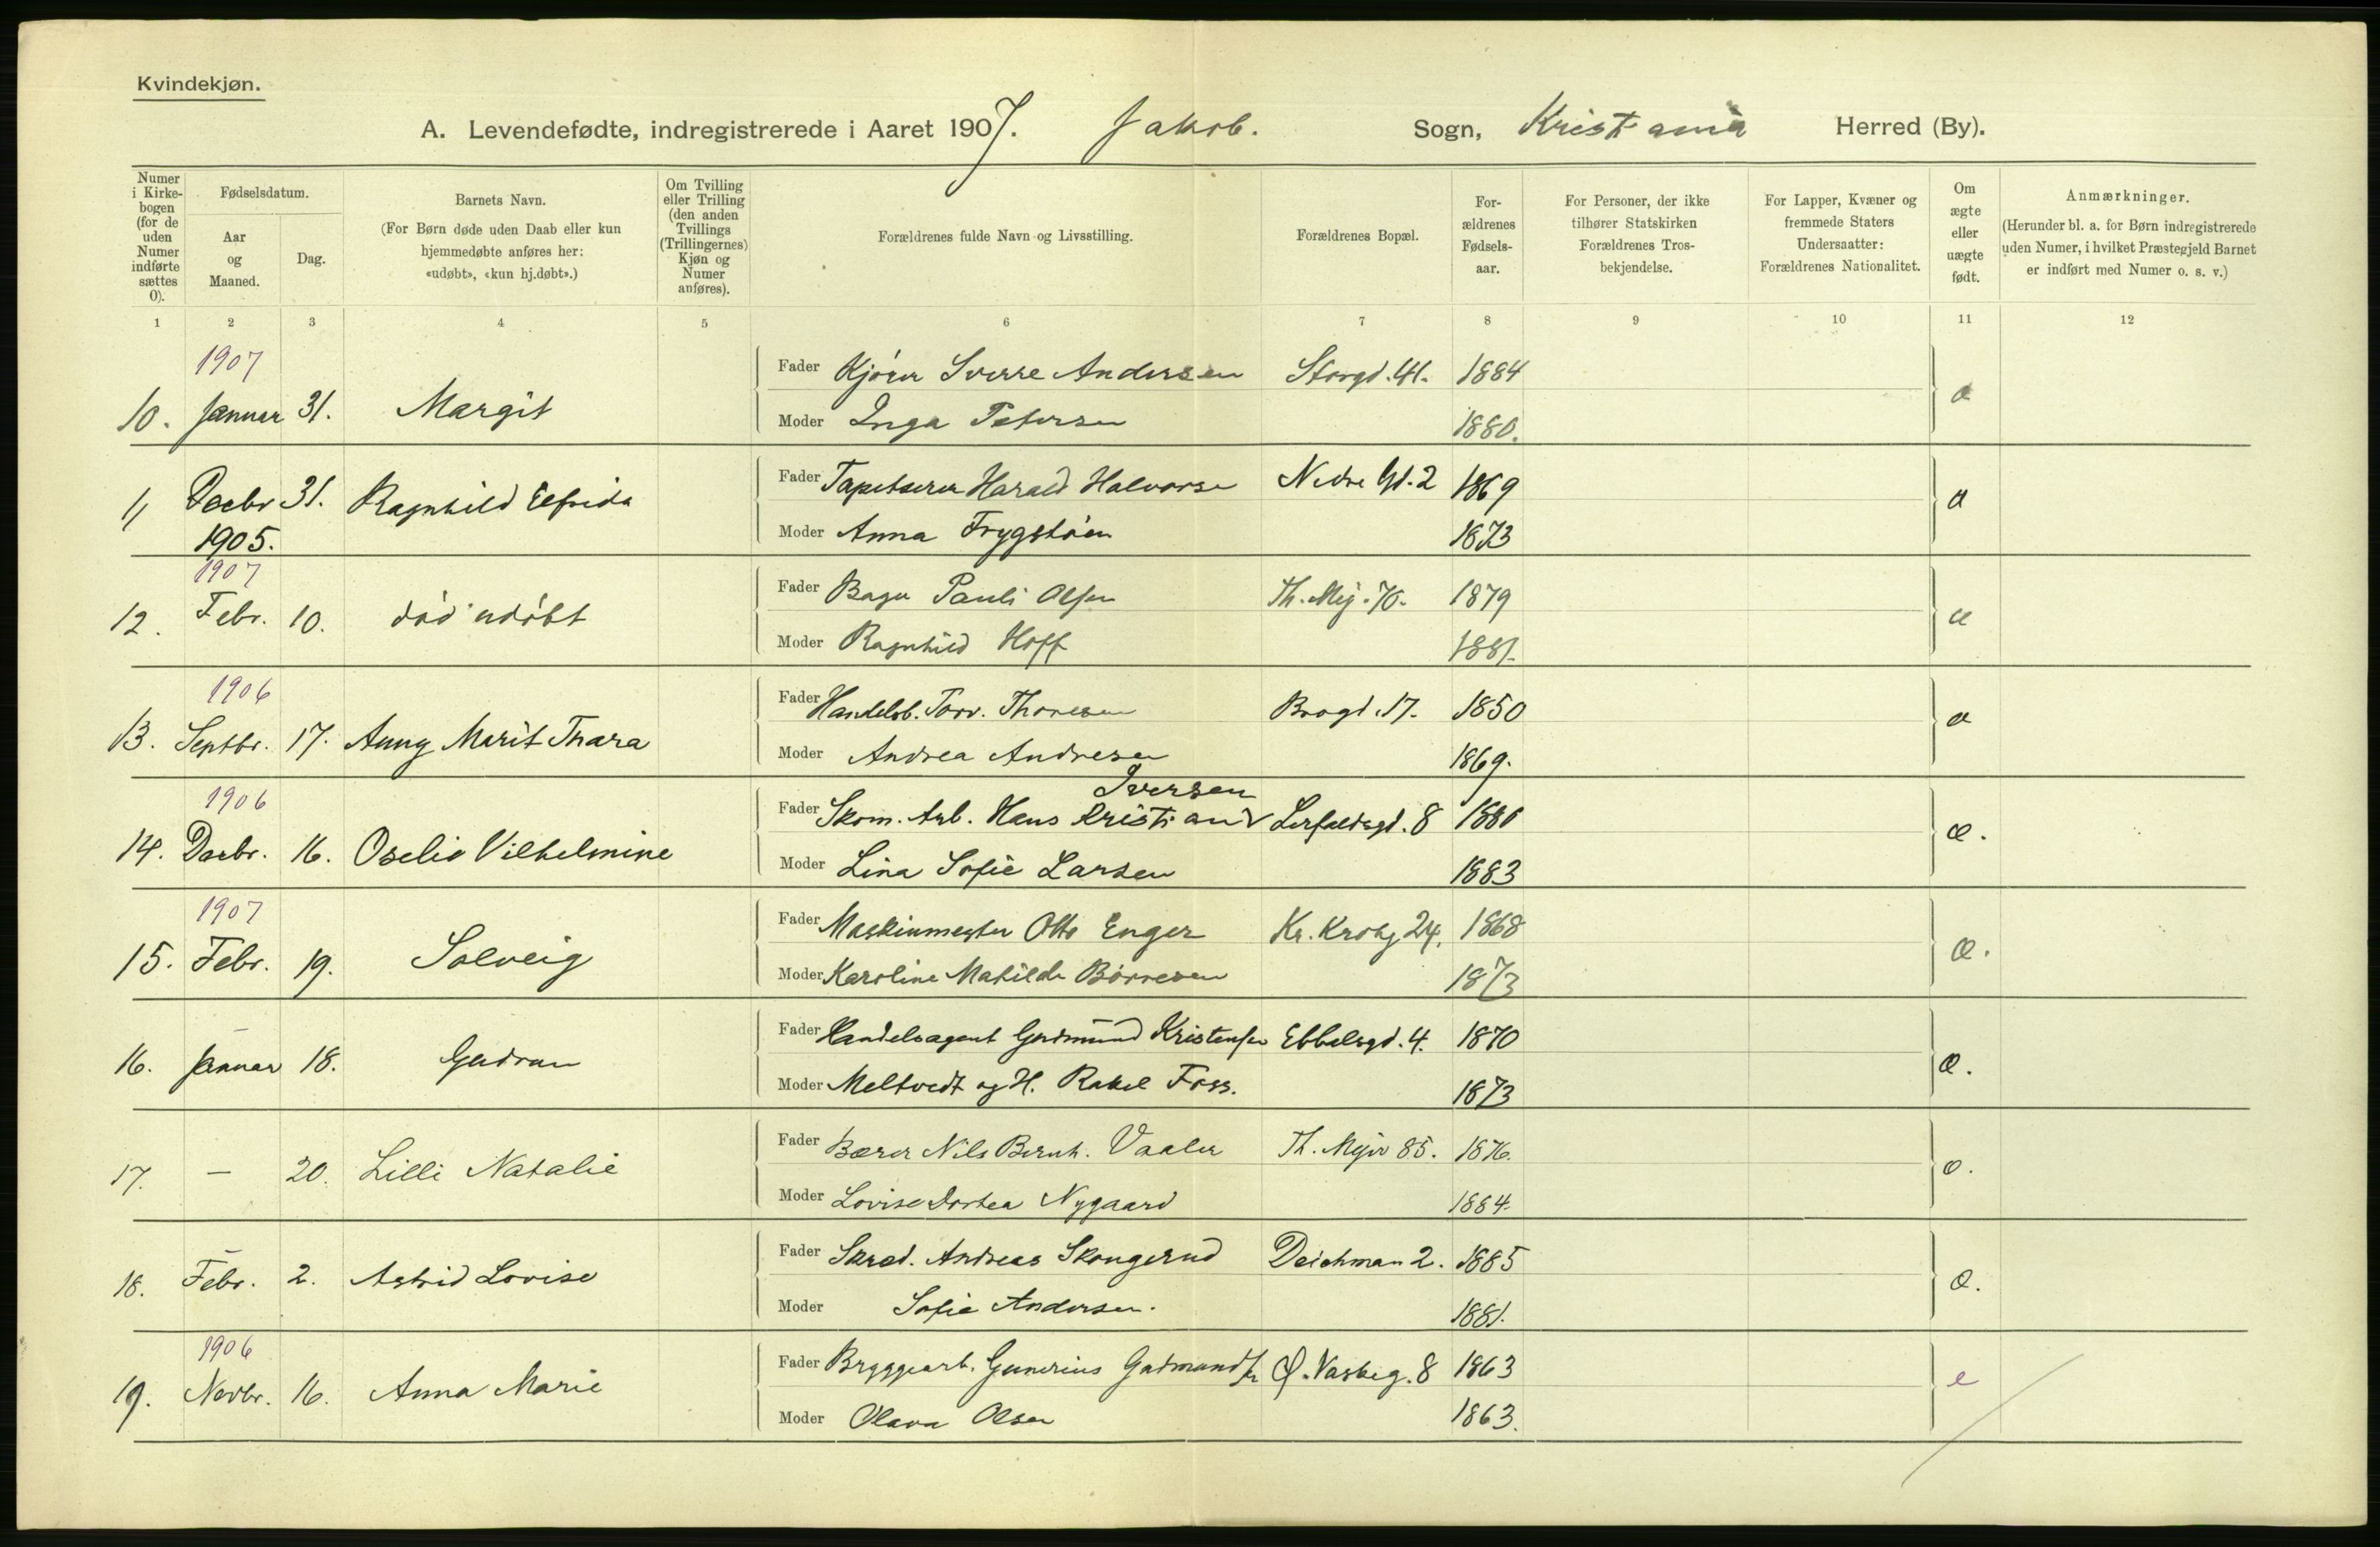 Kvindekjøn.
A. Levendefødte, indregistrerede i Aaret 1907. Jakob. Sogn, Kristiania Herred (By).
Numer i Kirkebogen (for de uden Numer indførte sættes 0).
Fødselsdatum.
Aar og Maaned.
Dag.
Barnets Navn.
(For Børn døde uden Daab eller kun hjemmedøbte anføres her: «udøbt», «kun hj.døbt».)
Om Tvilling eller Trilling (den anden Tvillings (Trillingernes) Kjøn og Numer anføres).
Forældrenes fulde Navn og Livsstilling.
Forældrenes Bopæl.
Forældrenes Fødselsaar.
For Personer, der ikke tilhører Statskirken Forældrenes Trosbekjendelse.
For Lapper, Kvæner og fremmede Staters Undersaatter: Forældrenes Nationalitet.
Om ægte eller uægte født.
Anmærkninger.
(Herunder bl. a. for Børn indregistrerede uden Numer, i hvilket Præstegjeld Barnet er indført med Numer o. s. v.)
1 2 3 4 5 6 7 8 9 10 11 12
1907
10. Januar 31. Margit
Fader Kjører Sverre Andersen Storgd. 41. 1884
Moder Inga Petersen 1880.
11 Decbr 31. Ragnhild Elfrida
1905.
Fader Tapetserer Harald Halvorse Nedre Gd. 2 1869
Moder Anna Frygstöen 1873
1907
12. Febr. 10. död udöbt
Fader Bager Pauli Olsen Th. Mej. 70. 1879
Moder Ragnhild Hoff 1881.
1906
13. Septbr. 17. Anny Marit Thara
Fader Handelsb. Torv. Thoresen Brogd. 17. 1850
Moder Andrea Andresen 1869.
1906
14. Decbr. 16. Oselie Vilhelmine
Iversen
Fader Skom. Arb. Hans Kristian Lerfaldsgd. 8 1880
Moder Lina Sofie Larsen 1883
1907
15. Febr. 19. Solveig
Fader Maskinmester Otto Enger Kr. Krohg 24. 1868
Moder Karoline Matilde Börresen 1873
16. Januar 18. Gudrun
Fader Handelsagent Gudmund Kristensen Ebbelsgd. 4. 1870
Moder Meltvedt og H. Rakel Foss. 1873
17. — 20. Lilli Natalie
Fader Bærer Nils Bernh. Vaaler Th. Mejer 85. 1876.
Moder Lovise Dortea Nygaard 1884.
18. Febr. 2. Astrid Lovise
Fader Skræd. Andreas Skongerud Deichman 2. 1885
Moder Sofie Andersen. 1881.
1906
19. Novbr. 16. Anna Marie
Fader Bryggearb. Gunerius Gudmundsen Ø. Vaskeg. 8 1863
Moder Olava Olsen 1863.